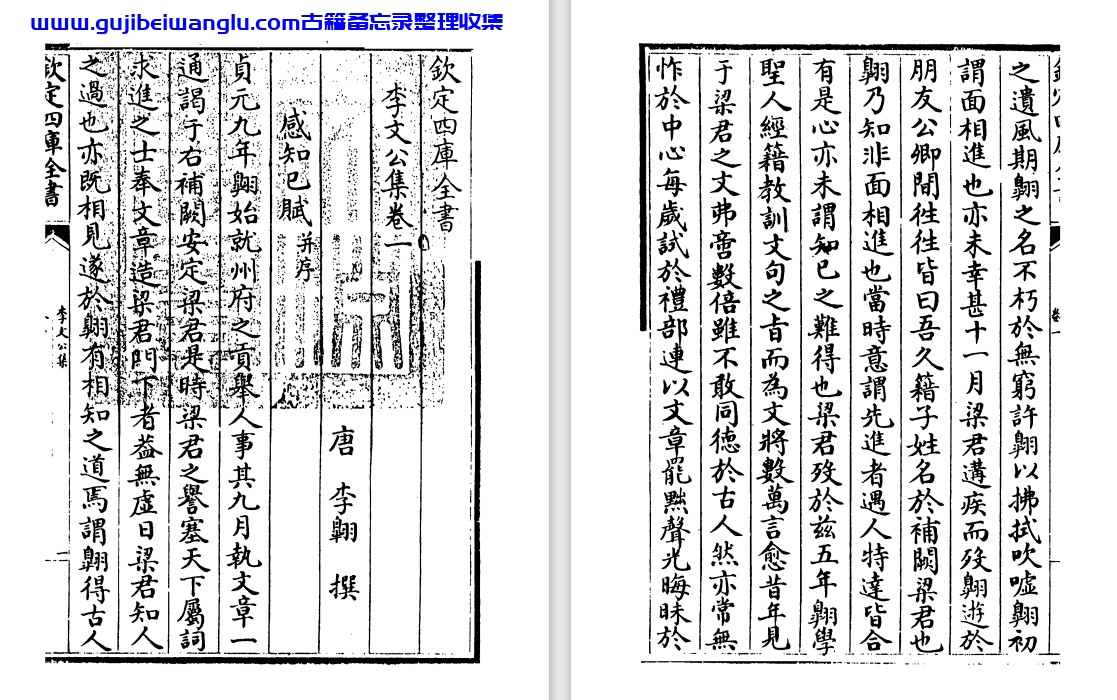 www.gujibeiwanglu.com古籍备忘录整理收集
欽定四庫全書
李文公集卷一
唐 李翺 撰
感知己賦 并序
貞元九年翺始就州府之貢舉人事其九月執文章一
通謁于右補闕安定梁君是時梁君之譽塞天下屬詞
求進之士奉文章造梁君門下者葢無虛日梁君知人
之過也亦既相見遂於翺有相知之道焉謂翺得古人
欽定四庫全書
李文公集
一
之遺風期翺之名不朽於無窮許翺以拂拭吹噓翺初
謂面相進也亦未幸甚十一月梁君遘疾而歿翺遊於
朋友公卿閒徃徃皆曰吾久籍子姓名於補闕梁君也
翺乃知非面相進也當時意謂先進者遇人特達皆合
有是心亦未謂知已之難得也梁君歿於兹五年翺學
聖人經籍教訓文句之㫖而為文將數萬言愈昔年見
于梁君之文弗啻數倍雖不敢同德於古人然亦常無
怍於中心每歲試於禮部連以文章罷黜聲光晦昧於